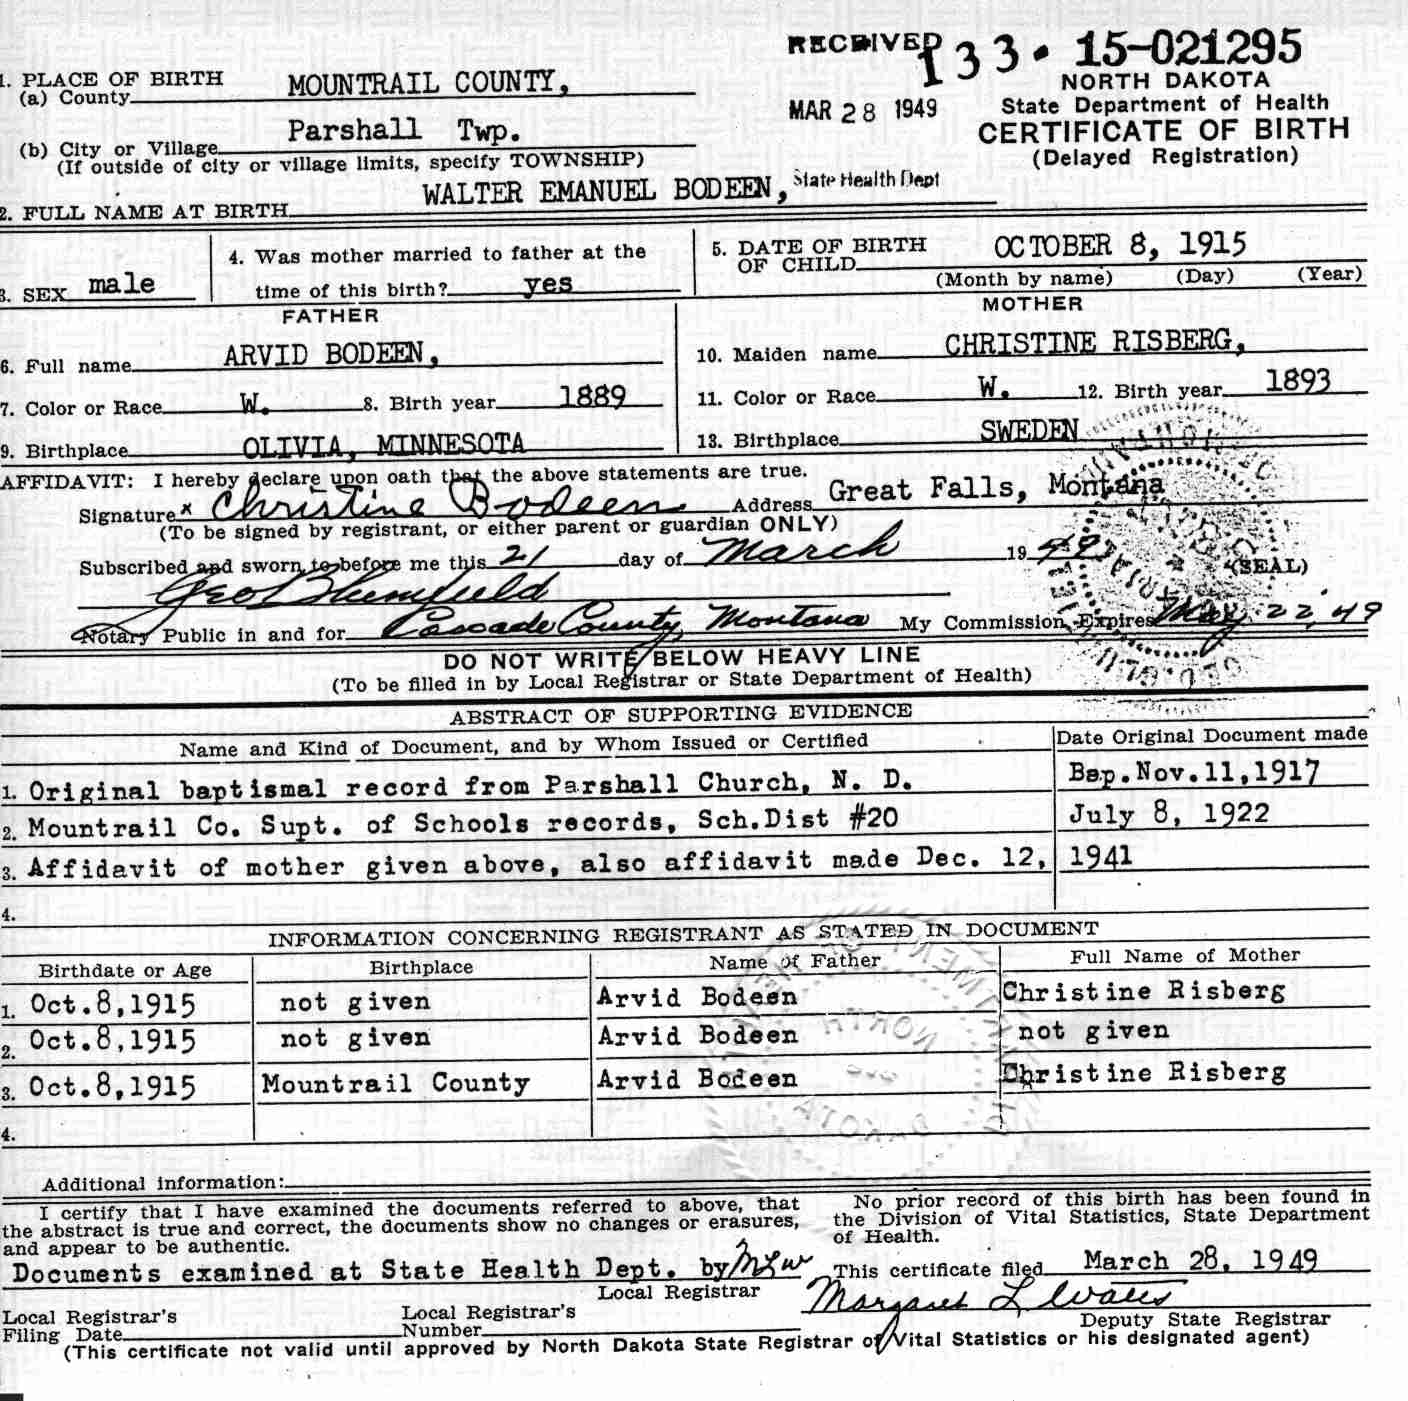 RECEIVED 133. 15-021295
MAR 28 1949
State Health Dept
NORTH DAKOTA
State Department of Health
CERTIFICATE OF BIRTH
(Delayed Registration)
1. PLACE OF BIRTH
(a) County MOUNTRAIL COUNTY,
(b) City or Village Parshall Twp.
(If outside of city or village limits, specify TOWNSHIP)
2. FULL NAME AT BIRTH WALTER EMANUEL BODEEN,
3. SEX male
4. Was mother married to father at the
time of this birth? yes
5. DATE OF BIRTH
OF CHILD OCTOBER 8, 1915
(Month by name) (Day) (Year)
FATHER
6. Full name ARVID BODEEN,
7. Color or Race W. 8. Birth year 1889
9. Birthplace OLIVIA, MINNESOTA
MOTHER
10. Maiden name CHRISTINE RISBERG,
11. Color or Race W. 12. Birth year 1893
13. Birthplace SWEDEN
AFFIDAVIT: I hereby declare upon oath that the above statements are true.
Signature x Christine Bodeen Address Great Falls, Montana
(To be signed by registrant, or either parent or guardian ONLY)
Subscribed and sworn to before me this 21 day of March 1949 (SEAL)
Geo Blumfield
Notary Public in and for Cascade County, Montana My Commission Expires May 22, 49
DO NOT WRITE BELOW HEAVY LINE
(To be filled in by Local Registrar or State Department of Health)
ABSTRACT OF SUPPORTING EVIDENCE
Name and Kind of Document, and by Whom Issued or Certified Date Original Document made
1. Original baptismal record from Parshall Church, N. D. Bap.Nov.11,1917
2. Mountrail Co. Supt. of Schools records, Sch.Dist #20 July 8, 1922
3. Affidavit of mother given above, also affidavit made Dec. 12, 1941
4.
INFORMATION CONCERNING REGISTRANT AS STATED IN DOCUMENT
Birthdate or Age Birthplace Name of Father Full Name of Mother
1. Oct.8,1915 not given Arvid Bodeen Christine Risberg
2. Oct.8,1915 not given Arvid Bodeen not given
3. Oct.8,1915 Mountrail County Arvid Bodeen Christine Risberg
4.
Additional information:
I certify that I have examined the documents referred to above, that
the abstract is true and correct, the documents show no changes or erasures,
and appear to be authentic.
Documents examined at State Health Dept. by
Local Registrar
Local Registrar's
Filing Date
Local Registrar's
Number
No prior record of this birth has been found in
the Division of Vital Statistics, State Department
of Health.
This certificate filed March 28, 1949
Margaret L Watts
Deputy State Registrar
(This certificate not valid until approved by North Dakota State Registrar of Vital Statistics or his designated agent)